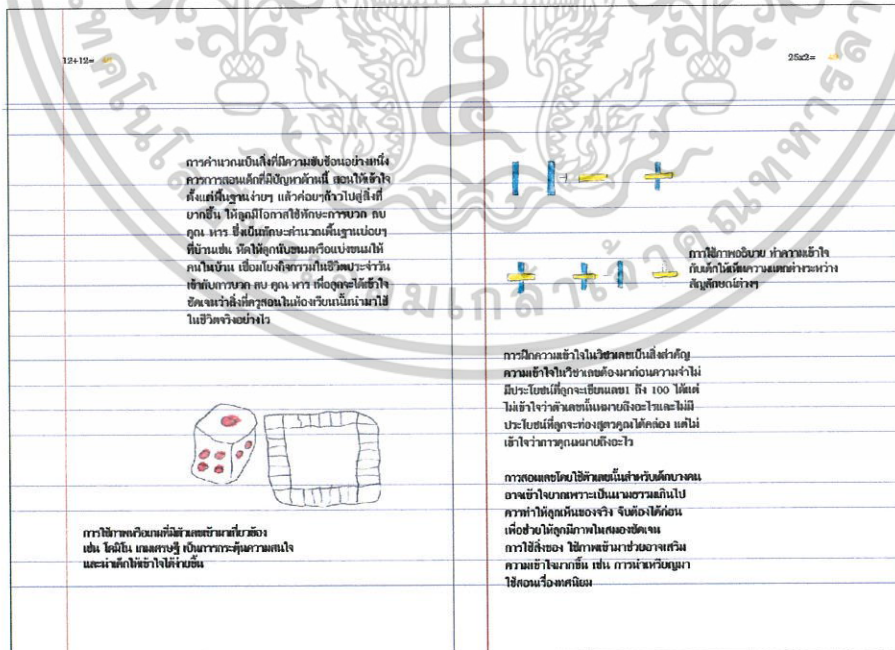 12+12=
การคำนวณเป็นสิ่งที่มีความซับซ้อนอย่างหนึ่ง
ควรการสอนเด็กที่มีปัญหาด้านนี้ สอนให้เข้าใจ
ตั้งแต่พื้นฐานง่ายๆ แล้วค่อยๆก้าวไปสู่สิ่งที่
ยากขึ้น ให้ลูกมีโอกาสใช้ทักษะการบวก ลบ
คูณ หาร ซึ่งเป็นทักษะคำนวณพื้นฐานบ่อยๆ
ที่บ้านเช่น หัดให้ลูกนับขนมหรือแบ่งขนมให้
คนในบ้าน เชื่อมโยงกิจกรรมในชีวิตประจำวัน
เข้ากับการบวก ลบ คูณ หาร เพื่อลูกจะได้เข้าใจ
ชัดเจนว่าสิ่งที่ครูสอนในห้องเรียนนั้นนำมาใช้
ในชีวิตจริงอย่างไร
การใช้ภาพหรือเกมที่มีตัวเลขเข้ามาเกี่ยวข้อง
เช่น โดมิโน เกมเศรษฐี เป็นการกระตุ้นความสนใจ
และนำเด็กให้เข้าใจได้ง่ายขึ้น
25x2=
การใช้ภาพอธิบาย ทำความเข้าใจ
กับเด็กให้เห็นความแตกต่างระหว่าง
สัญลักษณ์ต่างๆ
การฝึกความเข้าใจในวิชาเลขเป็นสิ่งสำคัญ
ความเข้าใจในวิชาเลขต้องมาก่อนความจำไม่
มีประโยชน์ที่ลูกจะเขียนเลข1 ถึง 100 ได้แต่
ไม่เข้าใจว่าตัวเลขนั้นหมายถึงอะไรและไม่มี
ประโยชน์ที่ลูกจะท่องสูตรคูณได้คล่อง แต่ไม่
เข้าใจว่าการคูณหมายถึงอะไร
การสอนเลขโดยใช้ตัวเลขนั้นสำหรับเด็กบางคน
อาจเข้าใจยากเพราะเป็นนามธรรมเกินไป
ควรทำให้ลูกเห็นของจริง จับต้องได้ก่อน
เพื่อช่วยให้ลูกมีภาพในสมองชัดเจน
การใช้สิ่งของ ใช้ภาพเข้ามาช่วยอาจเสริม
ความเข้าใจมากขึ้น เช่น การนำเหรียญมา
ใช้สอนเรื่องทศนิยม